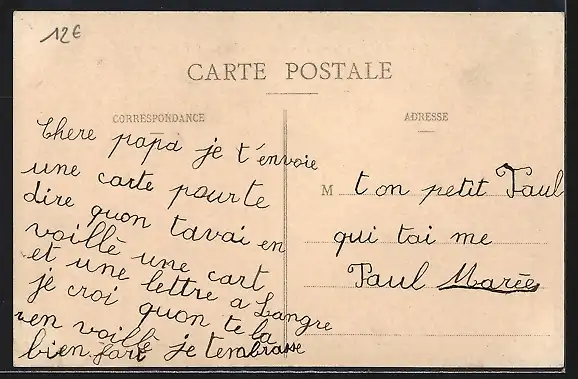 12€
CARTE POSTALE
CORRESPONDANCE
Chere papa je t'envoie
une carte pourte
dire quon tavai en
voille une cart
et une lettre a Langre
je croi quon te la
ren voille
bien fort je tembrasse
ADRESSE
M ton petit Paul
qui tai me
Paul Marée